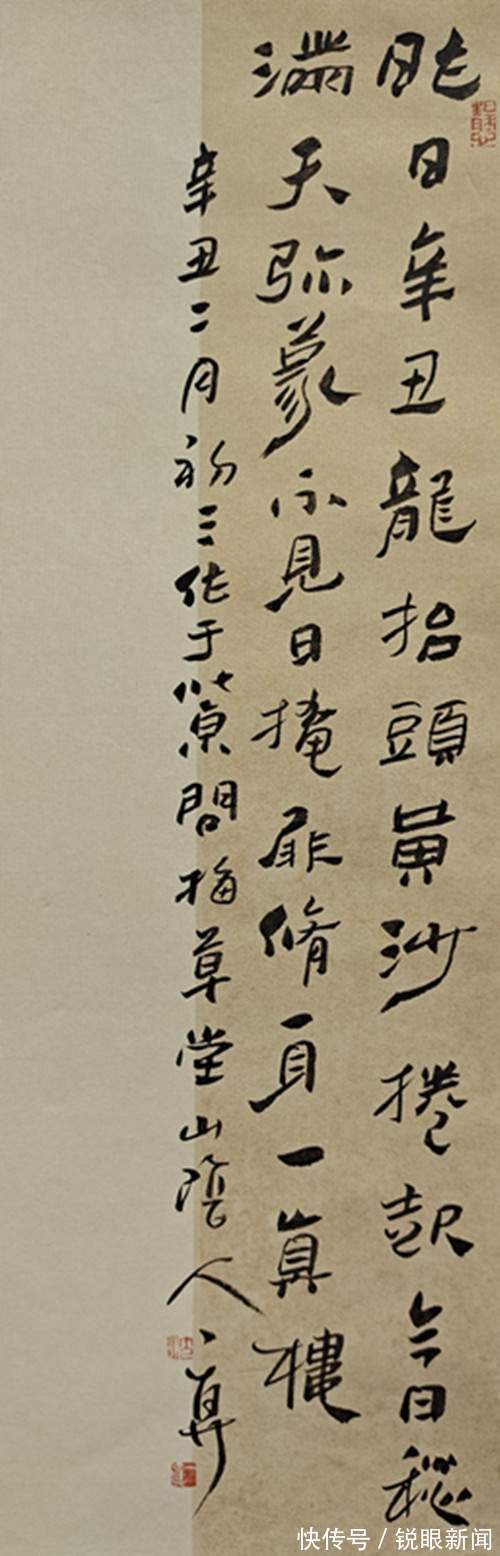 昨日辛丑龍抬頭黃沙捲起今日愁
滿天弥蒙不見日掩扉脩身一真樓
辛丑二月初三作于北京問梅草堂山陰人
快传号/锐眼新闻